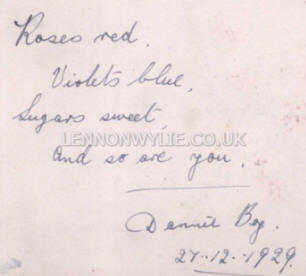 Roses red.
Violets blue,
Sugars sweet,
LENNONWYLIE.CO.UK
And so are you.
Dennit Boy.
27-12-1929.